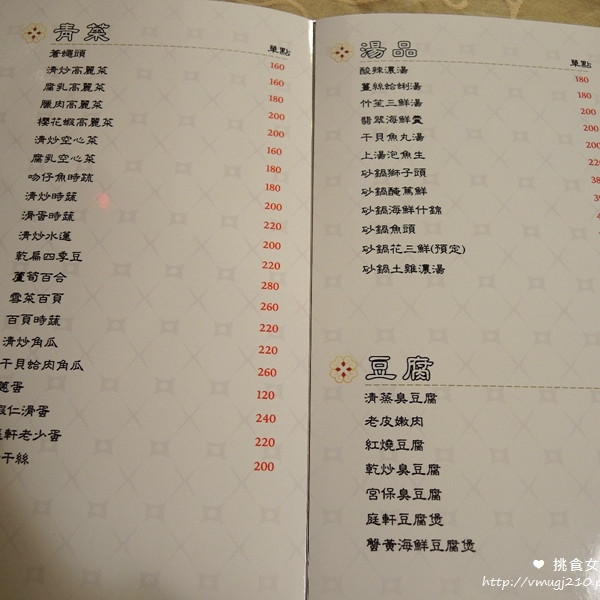 青菜
單點
蒼蠅頭 160
清炒高麗菜 160
腐乳高麗菜 180
臘肉高麗菜 200
櫻花蝦高麗菜 200
清炒空心菜 160
腐乳空心菜 180
吻仔魚時蔬 180
清炒時蔬 200
滑蛋時蔬 220
清炒水蓮 200
乾扁四季豆 220
蘆筍百合 280
雪菜百頁 260
百頁時蔬 220
清炒角瓜 220
干貝蛤肉角瓜 260
蔥蛋 120
蝦仁滑蛋 240
庭軒老少蛋 220
干絲 200
湯品
單點
酸辣濃湯 180
薑絲蛤蜊湯 180
竹笙三鮮湯 200
翡翠海鮮羹 200
干貝魚丸湯 200
上湯泡魚生
砂鍋獅子頭
砂鍋醃篤鮮
砂鍋海鮮什錦
砂鍋魚頭
砂鍋花三鮮(預定)
砂鍋土雞濃湯
豆腐
清蒸臭豆腐
老皮嫩肉
紅燒豆腐
乾炒臭豆腐
宮保臭豆腐
庭軒豆腐煲
蟹黃海鮮豆腐煲
♥ 挑食女
http://vmugj210.p